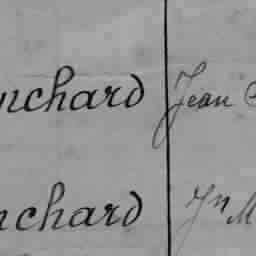 nchard Jean
nchard Jn M